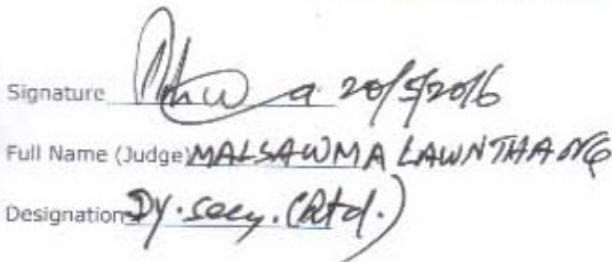 Signature 20/5/2016
Full Name (Judge) MALSAWMA LAWNTHANG
Designation Dy. Secy. (Rtd.)